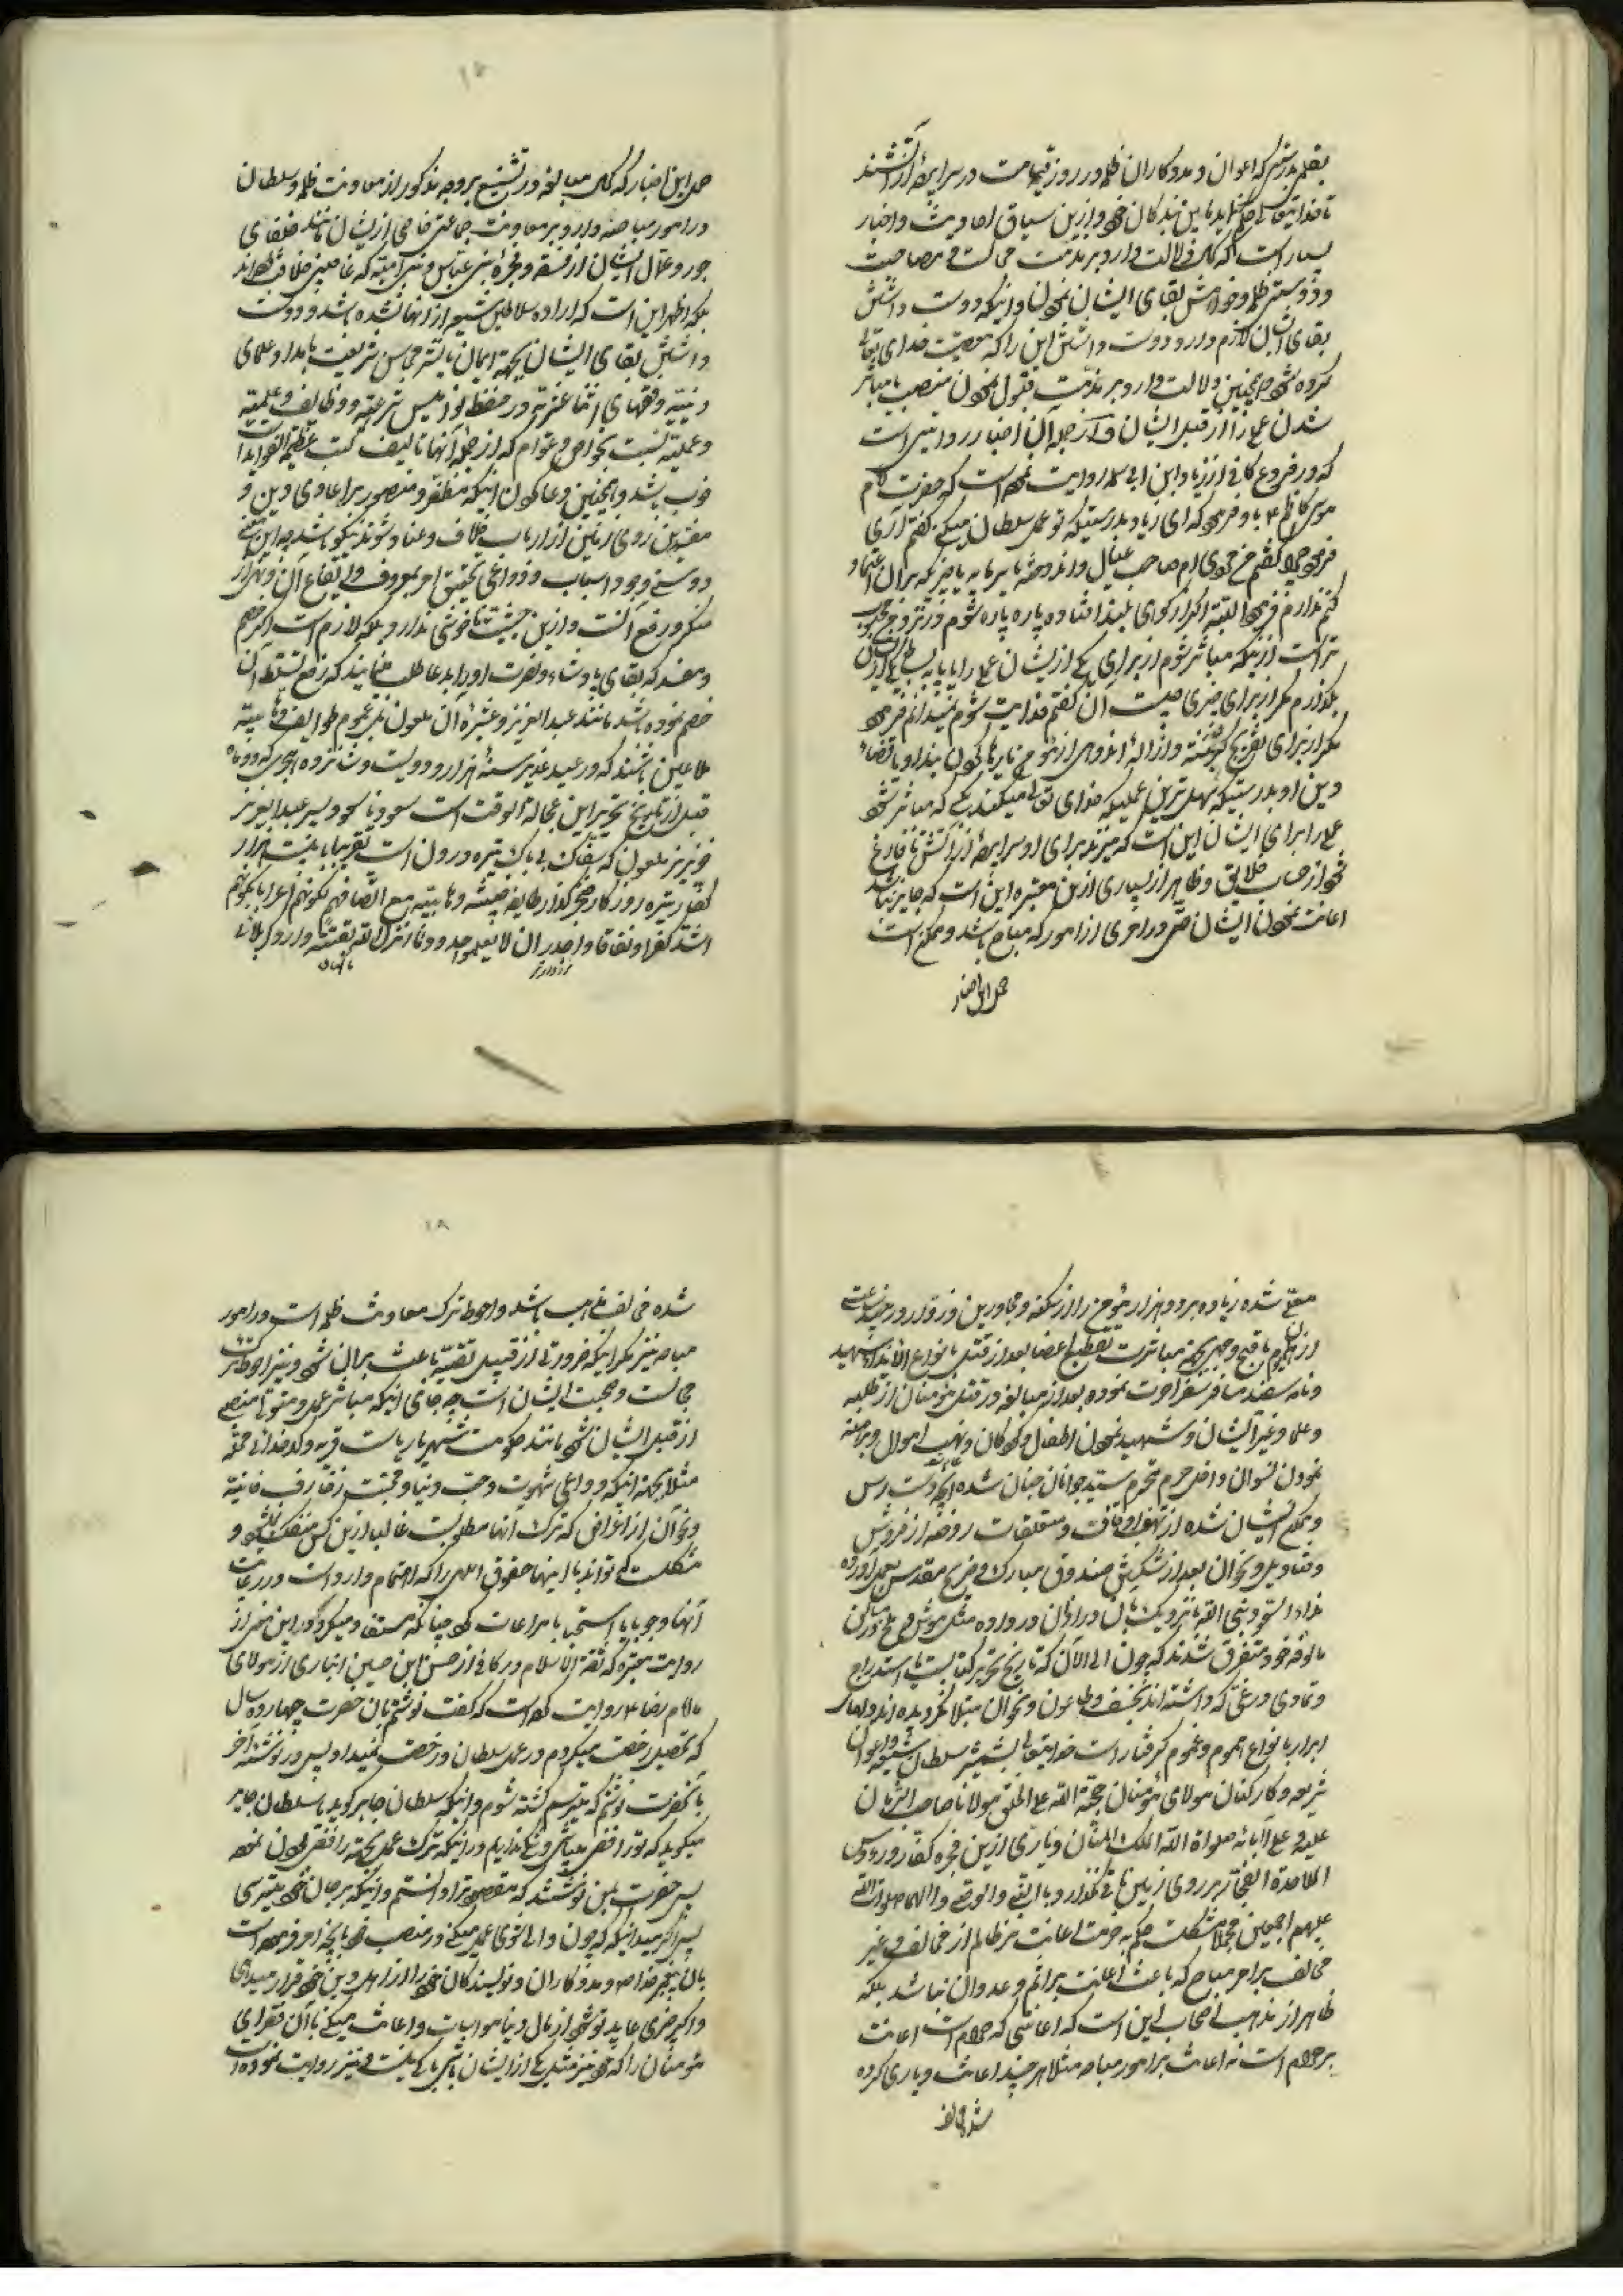 بقلم بدرستیکه اعوان و مددکاران ظلمه در روز قیامت در سراپرده از آتشند
تا خدایتعالی حکم نماید مابین بندکان خود و ازین سیاق احادیث و اخبار
بسیار است که دلالت دارد بر مذمت مجالست و مصاحبت
و دوستی ظلمه و خواهش بقای ایشان نمودن و اینکه دوست داشتن
بقای ایشان لازم دارد دوست داشتن این را که معصیت خدای تعالی
کرده شود همچنین دلالت دارد بر مذمت قبول نمودن منصب یا مباشر
شدن عمل را از قبل ایشان و از جمله آن اخبار روایتی است
که در فروع کافی از زیاد ابن ابی سلمه روایت نموده است که حضرت امام
موسی کاظم ع باو فرمود که ای زیاد بدرستیکه تو عمل سلطان میکنی گفتم آری
فرمود چرا گفتم من مردی ام صاحب عیال و اندوخته یا سرمایه یا چیزی که بران اعتماد
کنم ندارم فرمود البته اگر از کوهی بلند افتاده پاره پاره شوم نزد من محبوب
تر است ازینکه مباشر شوم از برای یکی از ایشان عملی را یا پا به بساط یکی از ایشان
بگذارم مگر از برای چیزی چیست آن گفتم فدایت شوم نمیدانم فرمود
مگر از برای تفریج کربتی و ازاله اندوهی از مؤمن یا رها کردن بند او یا قضاء
دین او بدرستیکه سهل ترین عملیکه خدای تعالی میکند بکسی که مباشر شود
عملی را برای ایشان این است که میزند برای او سراپرده از آتش تا فارغ
شود از حساب خلایق و ظاهر از بسیاری ازین معتبره این است که جایز نباشد
اعانت نمودن ایشان حتی در امری از امور که مباح باشد و ممکن است
حمل این اخبار
حمل این اخبار که کمال مبالغه در تشنیع بر وجه مذکور از معاونت ظلمه و سلطان
در امور مباحه دارد بر معاونت جماعتی خاص از ایشان مانند خلفای
جور و عمال ایشان از فسقه و فجره بنی عباس و بنی امیه که غاصبین خلافت بوده اند
بلکه اظهر این است که اراده سلاطین شیعه از آنها نشده باشد و دوست
داشتن بقای ایشان بجهة ایمان یا نشر محاسن شریعت یا مدد علمای
دینیه و فقهای اثنا عشریه در حفظ نوامیس شرعیه و وظایف علمیه
و عملیه نسبت بخواص و عوام که از جمله آنها تالیف کتب عظیمة الفوائد است
خوب باشد و همچنین دعا کردن اینکه مظفر و منصور بر اعادی دین و
مفسدین روی زمین از ارباب خلاف و عناد شوند نیکو باشد چه این
دوستی وجود اسباب و دواعی تحقیق امر بمعروف و ایقاع آن و نهی از
منکر و رفع آنست و ازین حیثیت ناخوشی ندارد بلکه لازم است اگر خصم
و مفسد که بقای پادشاه و نصرت او را بدعا طلب مینمایند که رفع تسلط آن
خصم نموده باشد مانند عبد العزیز و عشیره آن ملعون یعنی عموم طوایف وهابیه
ملاعین باشند که در عید غدیر سنه هزار و دویست و شانزده هجری که دو ماه
قبل از تاریخ تحریر این عجالة الوقت است سعود نامسعود پسر عبد العزیز
خونریز ملعون که سفاک بی باک تیره درون است تقریبا با بیست هزار
کفار تیره روزکار از طایفه خبیثه وهابیه مع اتصافهم بکونهم اعرابا بکونهم
اشد کفرا و نفاقا و اجدر ان لا یعلموا حدود ما انزل الله بغتة وارد کربلای
معلی شده زیاده بر دو هزار مؤمن را از سکنه و مجاورین و زوار در چند ساعت
از یوم باقبح وجهی بمباشرت تقطیع اعضا بعد از قتل بانواع الایذاء شهید
و نامه سفید مسافر سفر آخرت نموده بعد از مبالغه در قتل مؤمنان از طلبه
و علما و غیر ایشان و شهید نمودن اطفال و کودکان و نهب اموال و برهنه
نمودن نسوان داخل حرم محترم سید جوانان جنان شده آنچه دست رس
و ممکن ایشان شده از متعلقات روضه از فروش
و قنادیل و نحو آن بعد از شکستن صندوق مبارک و ضریح مقدس بعمل آورده
مالوفه خود متفرق شدند که چون الی الآن که تاریخ تحریر کتابست باستدراج
و تمادی در غیّی که داشته اند بخسف و طاعون و نحو آن مبتلا نگردیده اند و اهل
ابرار بانواع هموم و غموم گرفتار است خدایتعالی بشمشیر سلطان شیعه و اعوان
شریعه و کارکنان مولای مؤمنان حجة الله علی الخلق مولانا صاحب الزمان
علیه و علی آبائه صلواة الله الملک المنان دیاری ازین فجره کفار و رؤوس
الملاحدة الفجار بر روی زمین باقی نگذارد بالنبی و الوصی و آلهما صلوات الله
علیهم اجمعین مجملا مشکلست حکم به حرمت اعانت هر ظالم از مخالف و غیر
مخالف بر امر مباح که باعث اعانت بر اثم و عدوان نباشد بلکه
ظاهر از مذهب اصحاب این است که اعانتی که حرام است اعانت
بر حرام است نه اعانت بر امور مباحه مثلا هر چند اعانت و یاری کرده
شده مخالف
۱۸
شده مخالف مذهب باشد و احوط ترک معاونت ظلمه است در امور
مباحه نیز مگر اینکه ضرورتی از قبیل تقیه باعث بر آن شود و نیز احوط ترک
مجالست و محبت ایشان است چه جای اینکه مباشر عمل و متولی منصبی
از قبل ایشان شود مانند حکومت شهر یا ریاست قریه و کدخدائی محله
مثلا بجهة اینکه دواعی شهوت و حب دنیا و محبت زخارف فانیه
و نحو آن از اغراض که ترک آنها مطلوبست غالبا ازین کس منفک نشود و
مشکلست که تواند با اینها حقوق الهی را که اهتمام وارد است در رعایت
آنها وجوبا یا استحبابا مراعات کرد چنانکه مستفاد میگردد این معنی از
روایت معتبره که ثقة الاسلام در کافی از حسن ابن حسین انباری از مولای
ما امام رضا ع روایت کرده است که گفت نوشتم بآن حضرت چهارده سال
که تحصیل رخصت میکردم در عمل سلطان و رخصت نمیداد پس در نوشته آخر
بآنحضرت نوشتم که میترسم کشته شوم و اینکه سلطان جابر گوید یا سلطان جابر
میگوید که تو رافضی میباشی و شک نداریم در اینکه ترک عمل بجهة رافضی بودن نموده
پس حضرت بمن نوشتند که مقصود ترا دانستم و اینکه بر جان خود میترسی
پس اگر میدانی که چون والی شوی عمل میکنی در منصب خود بآنچه امر فرموده است
بآن پیغمبر خدا ص و مددکاران و نویسندکان خود را از اهل دین خود قرار میدهی
و اگر چیزی عاید تو شود از مال دنیا مواسات و اعانت میکنی بآن فقرای
مؤمنان را که خود نیز مثل یکی از ایشان باشی باکی نیست و نیز روایت نموده است